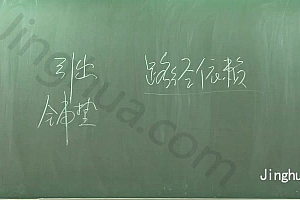 引出 路径依赖
铺垫
Jinghua.com
Jinghu